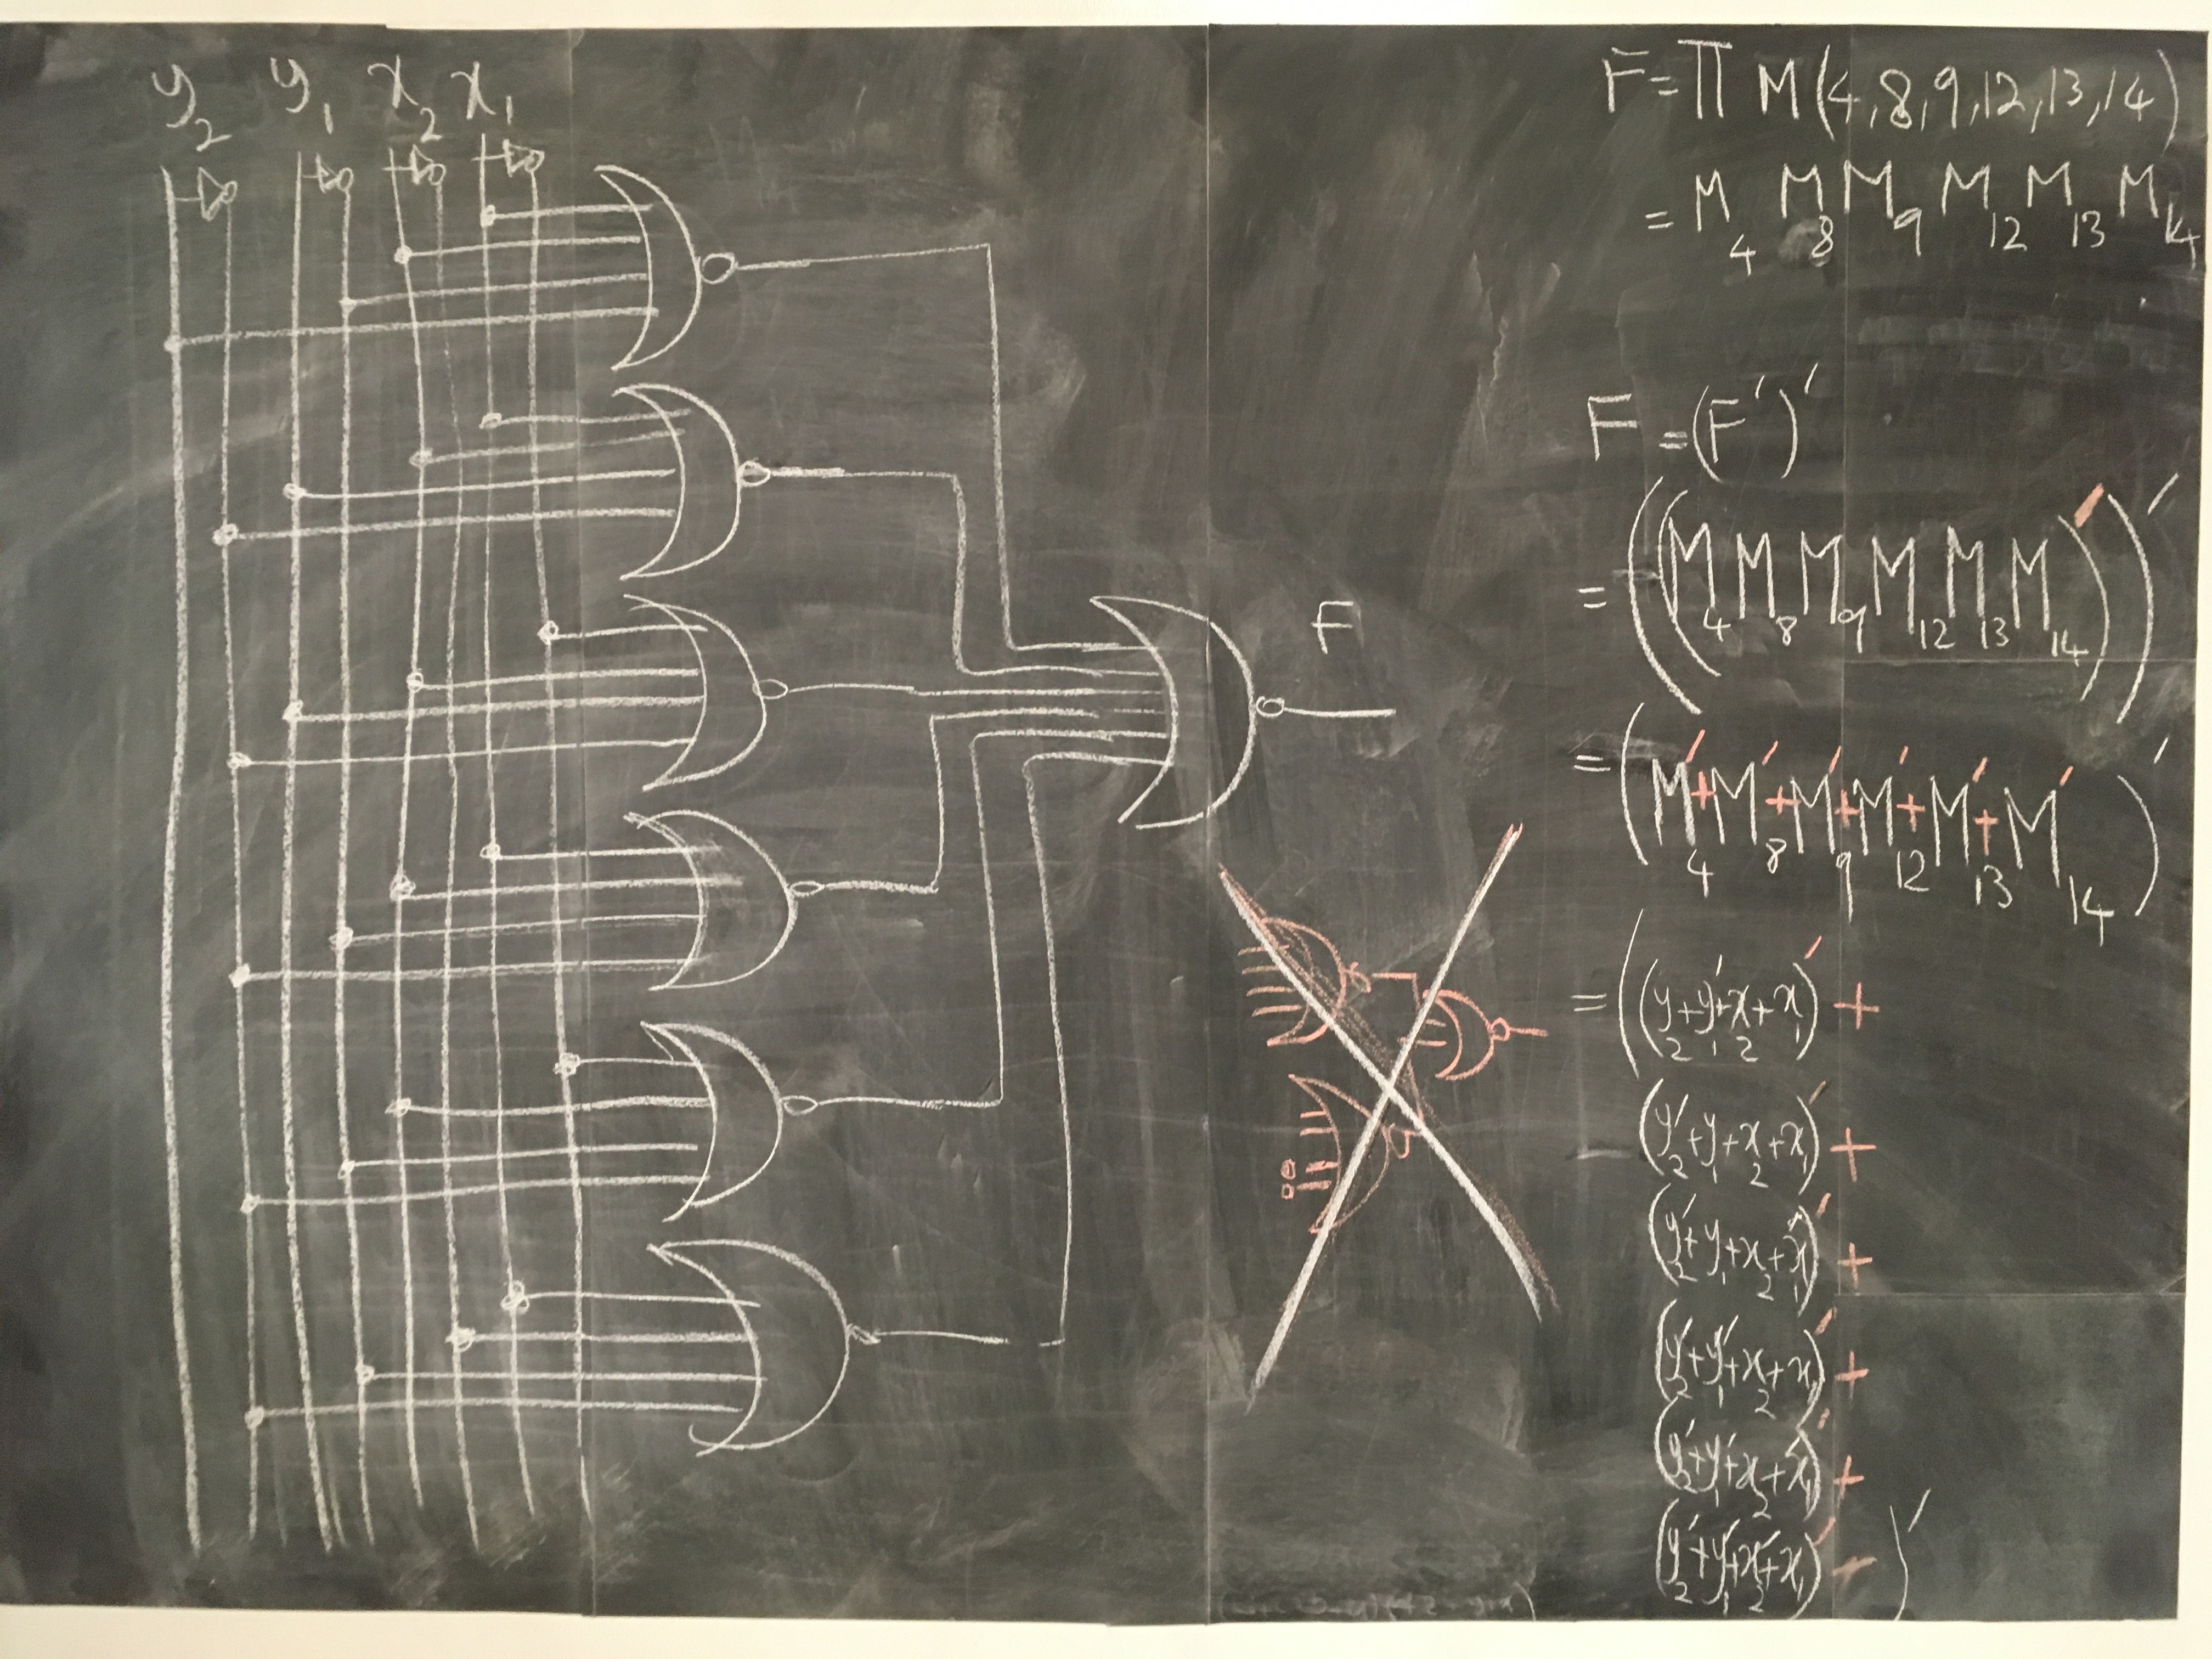 y₂ y₁ x₂ x₁
F = Π M(4,8,9,12,13,14)
= M₄ M₈ M₉ M₁₂ M₁₃ M₁₄
F = (F')'
= ((M₄ M₈ M₉ M₁₂ M₁₃ M₁₄)')'
F
= (M₄' + M₈' + M₉' + M₁₂' + M₁₃' + M₁₄')'
= ((y₂+y₁'+x₂+x₁)' +
(y₂'+y₁+x₂+x₁)' +
(y₂'+y₁+x₂+x₁')' +
(y₂'+y₁'+x₂+x₁)' +
(y₂'+y₁'+x₂+x₁')' +
(y₂'+y₁'+x₂'+x₁)' + )'